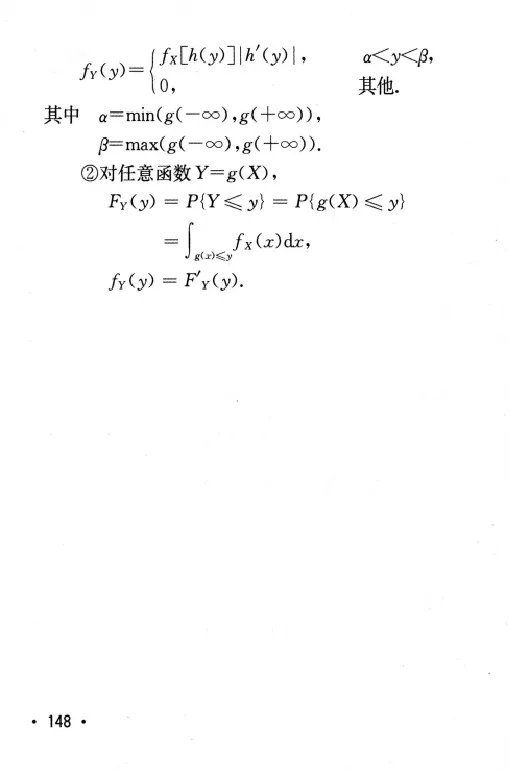 f_Y(y)={ f_X[h(y)]|h′(y)|, α<y<β,
0, 其他.
其中 α=min(g(-∞),g(+∞)),
β=max(g(-∞),g(+∞)).
②对任意函数Y=g(X),
F_Y(y) = P{Y⩽y} = P{g(X)⩽y}
= ∫_{g(x)⩽y} f_X(x)dx,
f_Y(y) = F′_Y(y).
· 148 ·